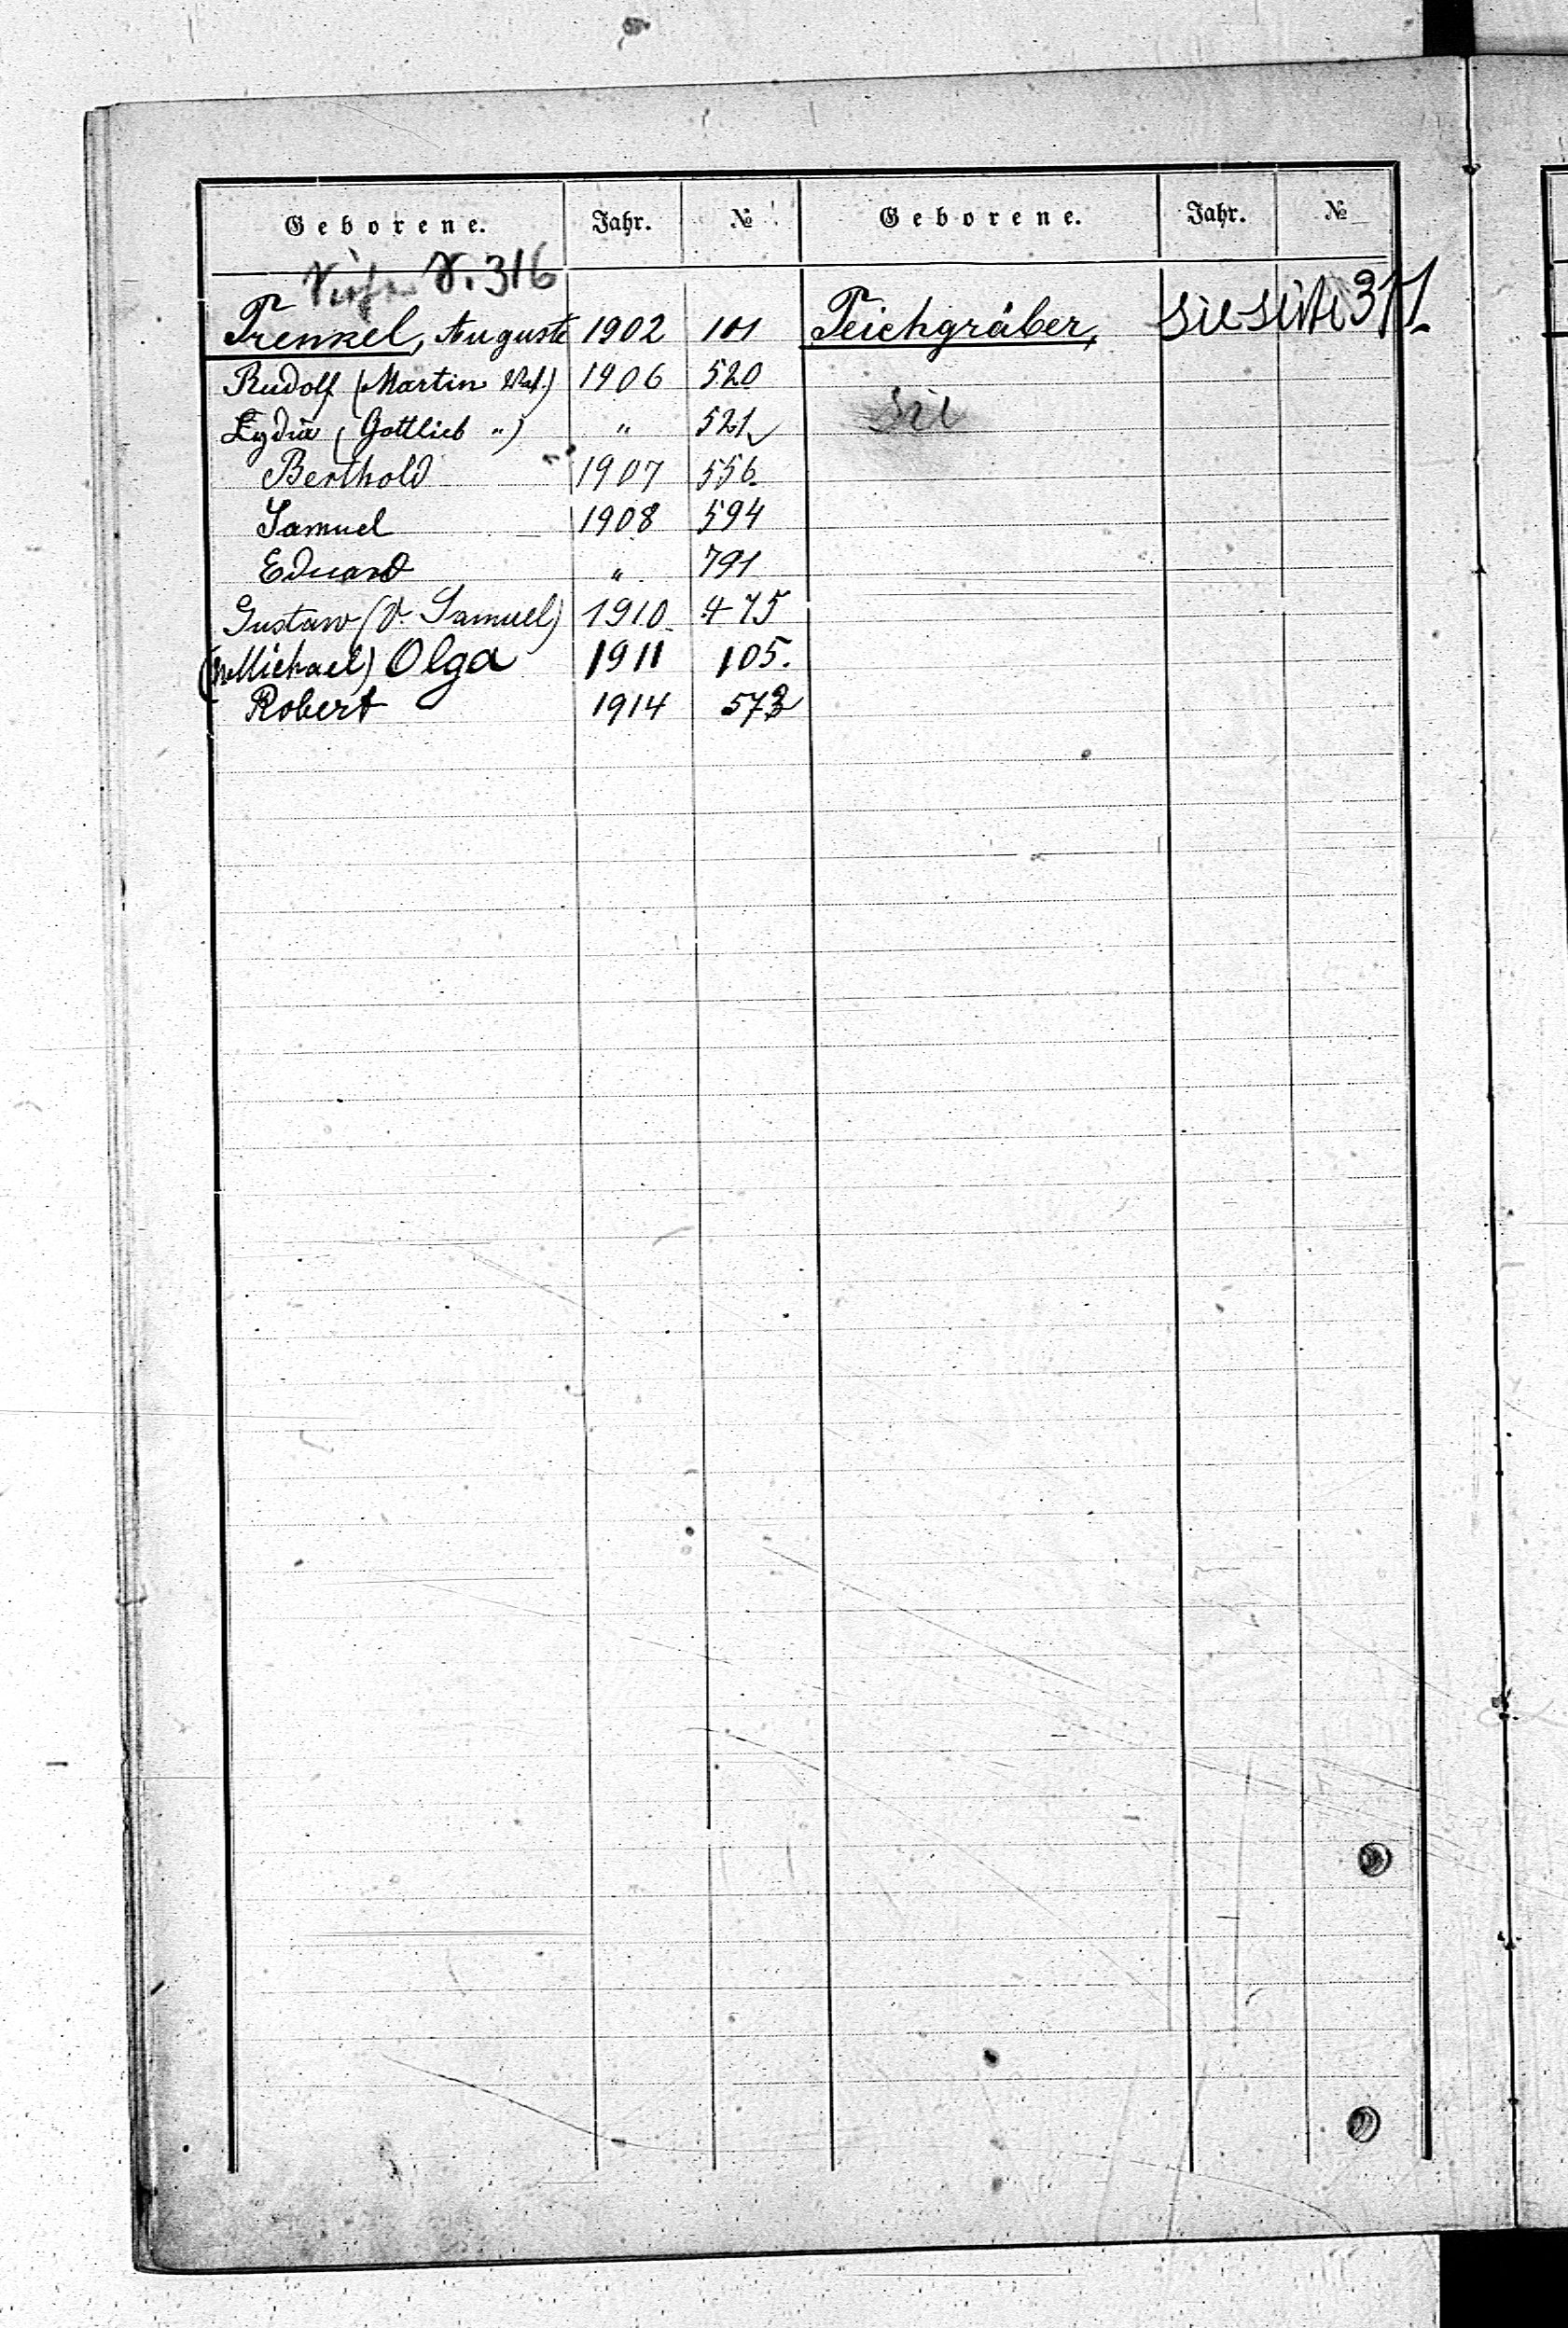 Geborene. Jahr. № Geborene. Jahr. №
S. 316
Trenkel, Auguste 1902 101 Teichgräber, sie seite 311.
Rudolf (Martin Vat.) 1906 520
Lydia (Gottlieb ") " 521 sie
Berthold 1907 556
Samuel 1908 594
Eduard " 791
Gustaw (V. Samuel) 1910 475
(v. Michael) Olga 1911 105.
Robert 1914 573